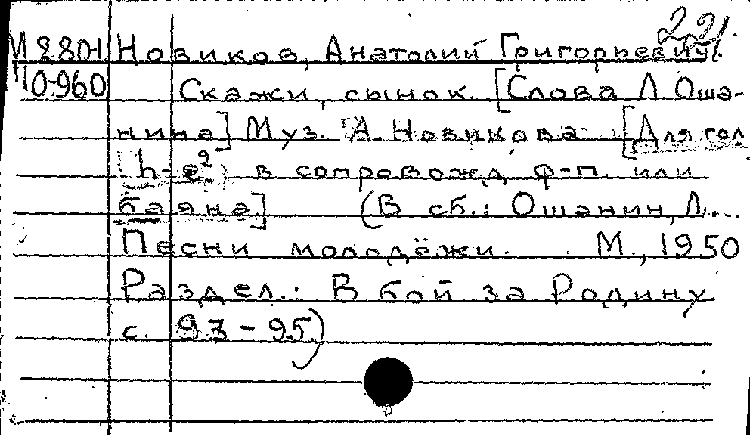 221.
М 2801 Новиков, Анатолий Григорьевич.
П0-960 Скажи, сынок. [Слова Л. Оша-
нина] Муз. А. Новикова. [Для гол.
(h-e²) в сопровожд. ф-п. или
баяна] (В сб.: Ошанин, Л..
Песни молодёжи. М., 1950
Раздел.: В бой за Родину
с. 93-95)